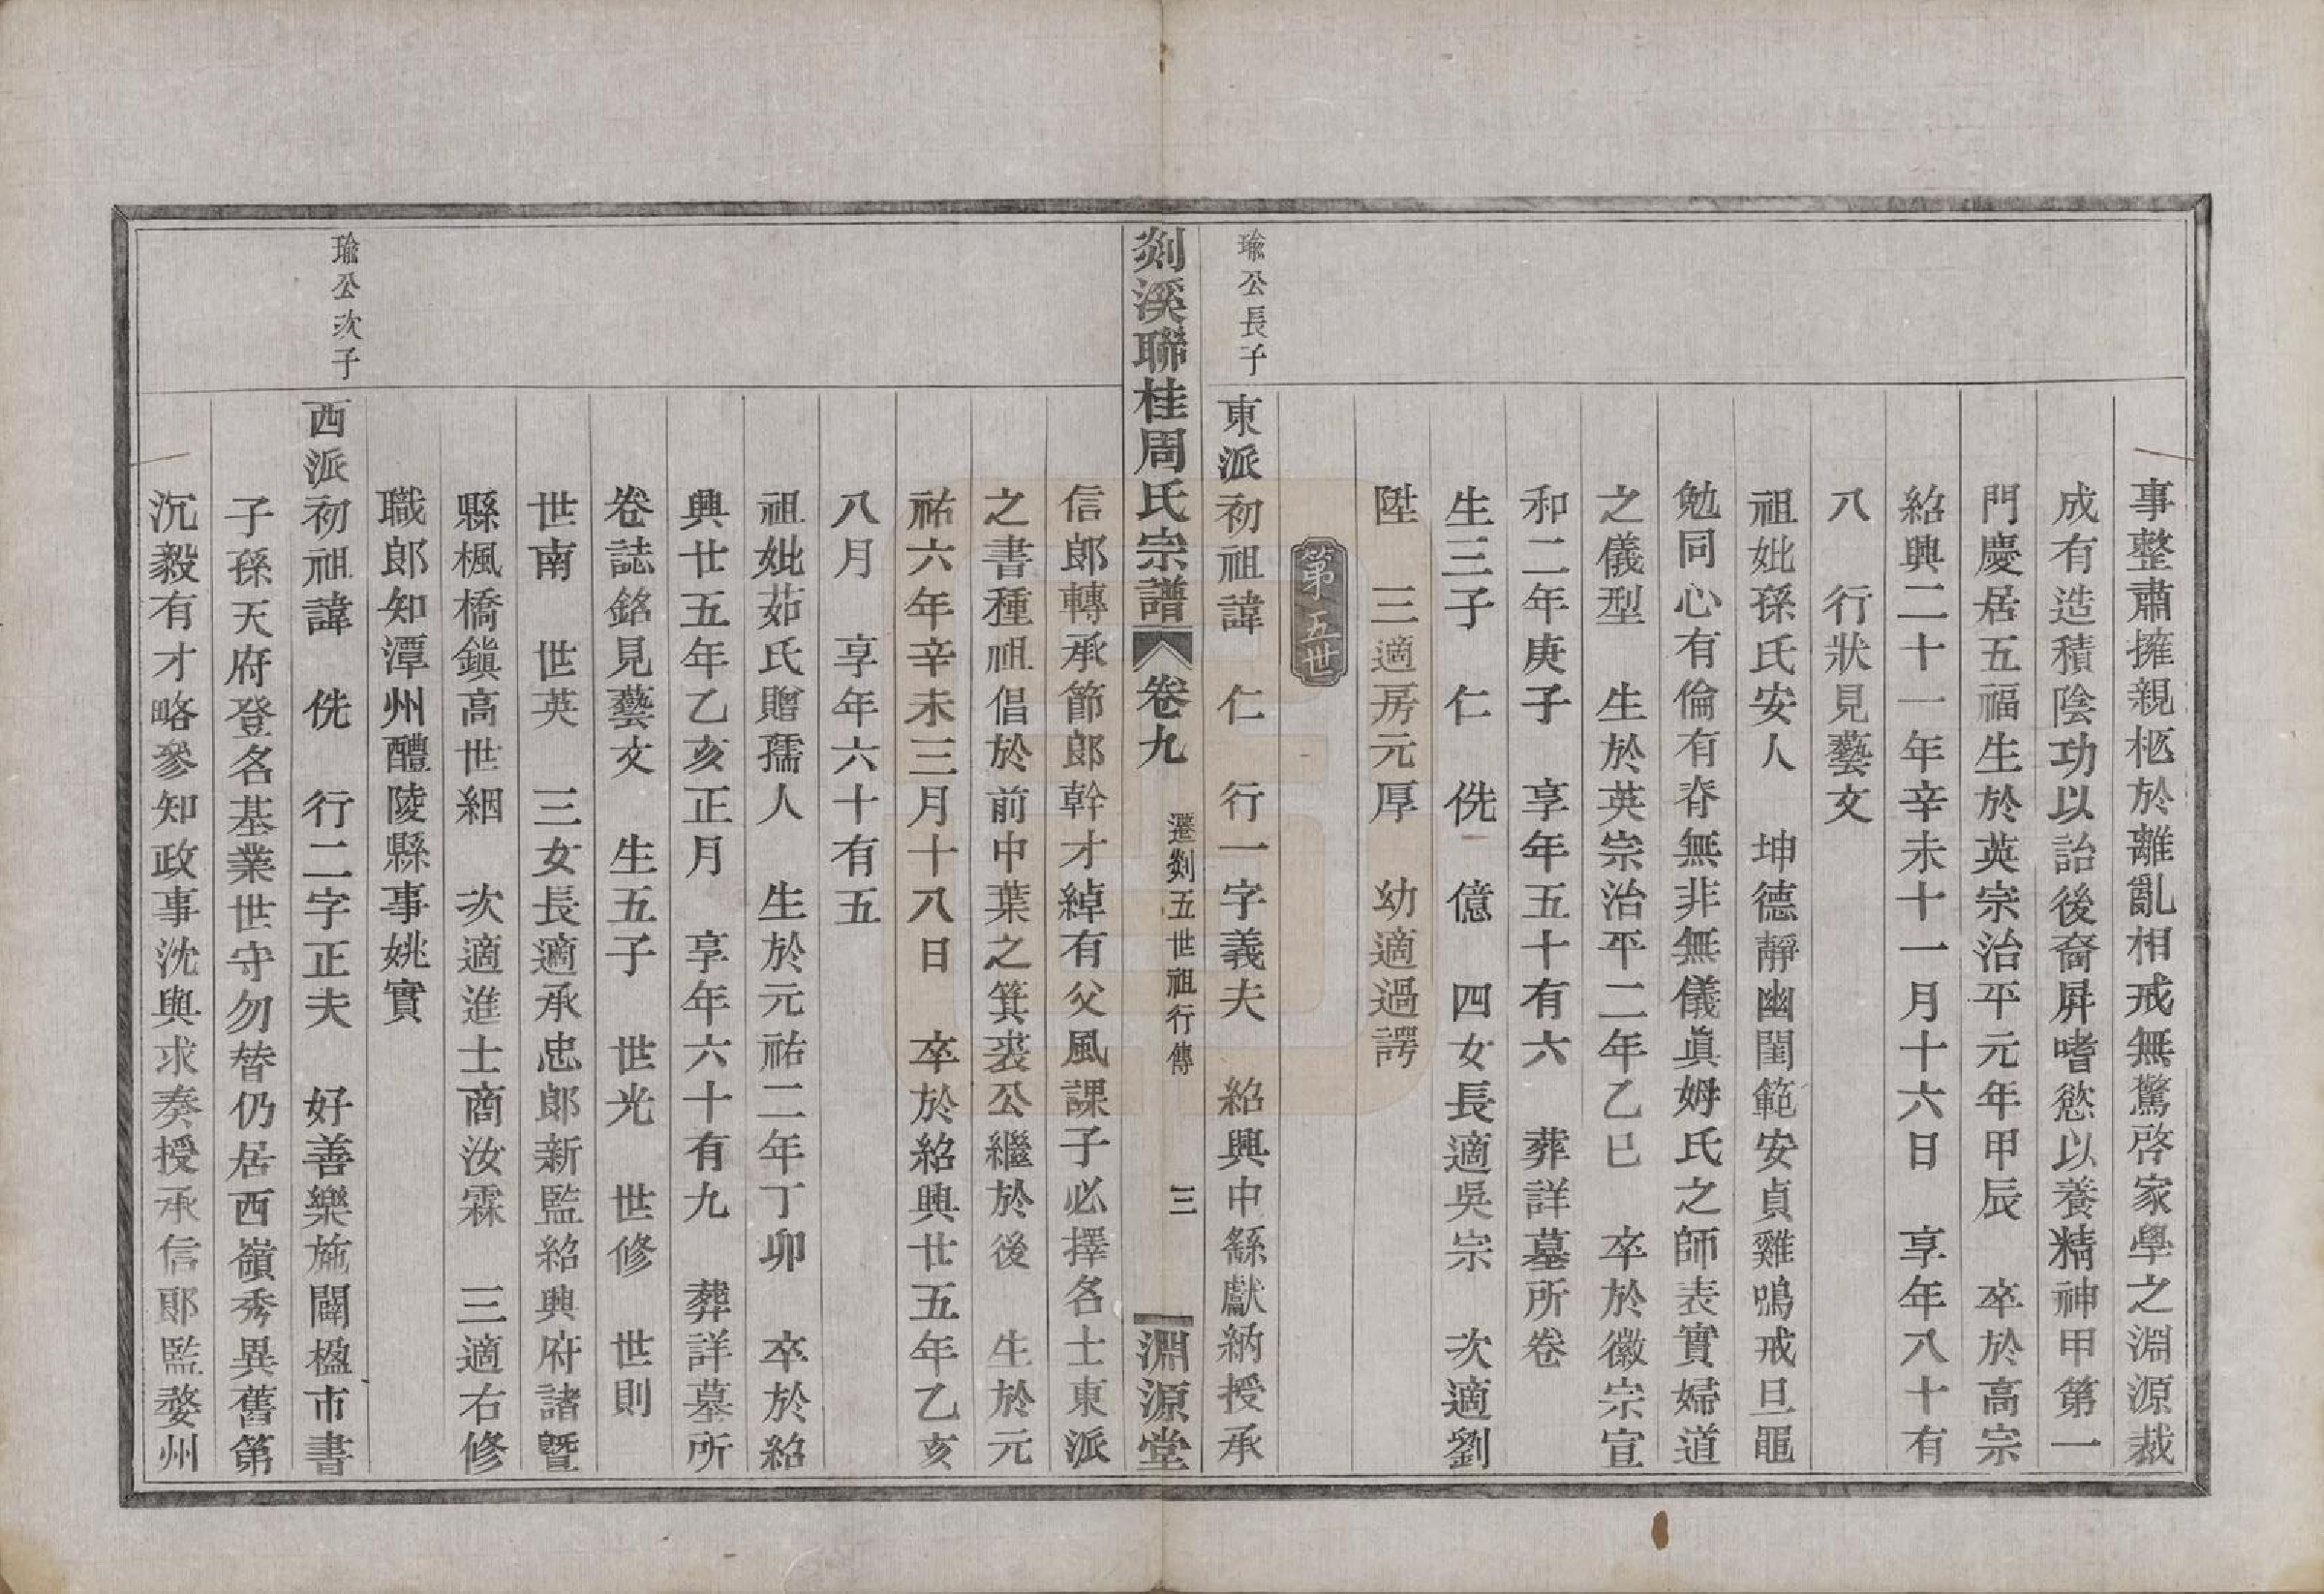 事整肅擁親柩於離亂相戒無驚啓家學之淵源裁
成有造積陰功以詒後裔屏嗜慾以養精神甲第一
門慶居五福生於英宗治平元年甲辰　卒於高宗
紹興二十一年辛未十一月十六日　享年八十有
八　行狀見藝文
祖妣孫氏安人　坤德靜幽閨範安貞雞鳴戒旦黽
勉同心有倫有脊無非無儀眞姆氏之師表實婦道
之儀型　生於英宗治平二年乙巳　卒於徽宗宣
和二年庚子　享年五十有六　葬詳墓所卷
生三子　仁　侁　億　四女長適吳宗　次適劉
陞　三適房元厚　幼適過諤
第五世
瑜公長子
東派初祖諱　仁　行一字義夫　紹興中繇獻納授承
剡溪聯桂周氏宗譜　卷九　遷剡五世祖行傳　三　淵源堂
信郎轉承節郎幹才綽有父風課子必擇名士東派
之書種祖倡於前中葉之箕裘公繼於後　生於元
祐六年辛未三月十八日　卒於紹興廿五年乙亥
八月　享年六十有五
祖妣茹氏贈孺人　生於元祐二年丁卯　卒於紹
興廿五年乙亥正月　享年六十有九　葬詳墓所
卷誌銘見藝文　生五子　世光　世修　世則
世南　世英　三女長適承忠郎新監紹興府諸暨
縣楓橋鎭高世絪　次適進士商汝霖　三適右修
職郎知潭州醴陵縣事姚實
瑜公次子
西派初祖諱　侁　行二字正夫　好善樂施闢楹市書
子孫天府登名基業世守勿替仍居西嶺秀異舊第
沉毅有才略參知政事沈與求奏授承信郎監婺州